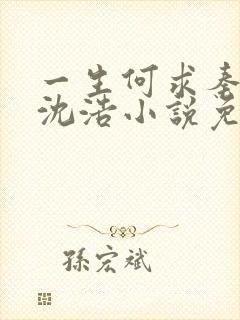 一生何求秦
沈浩小說免
孫宏斌